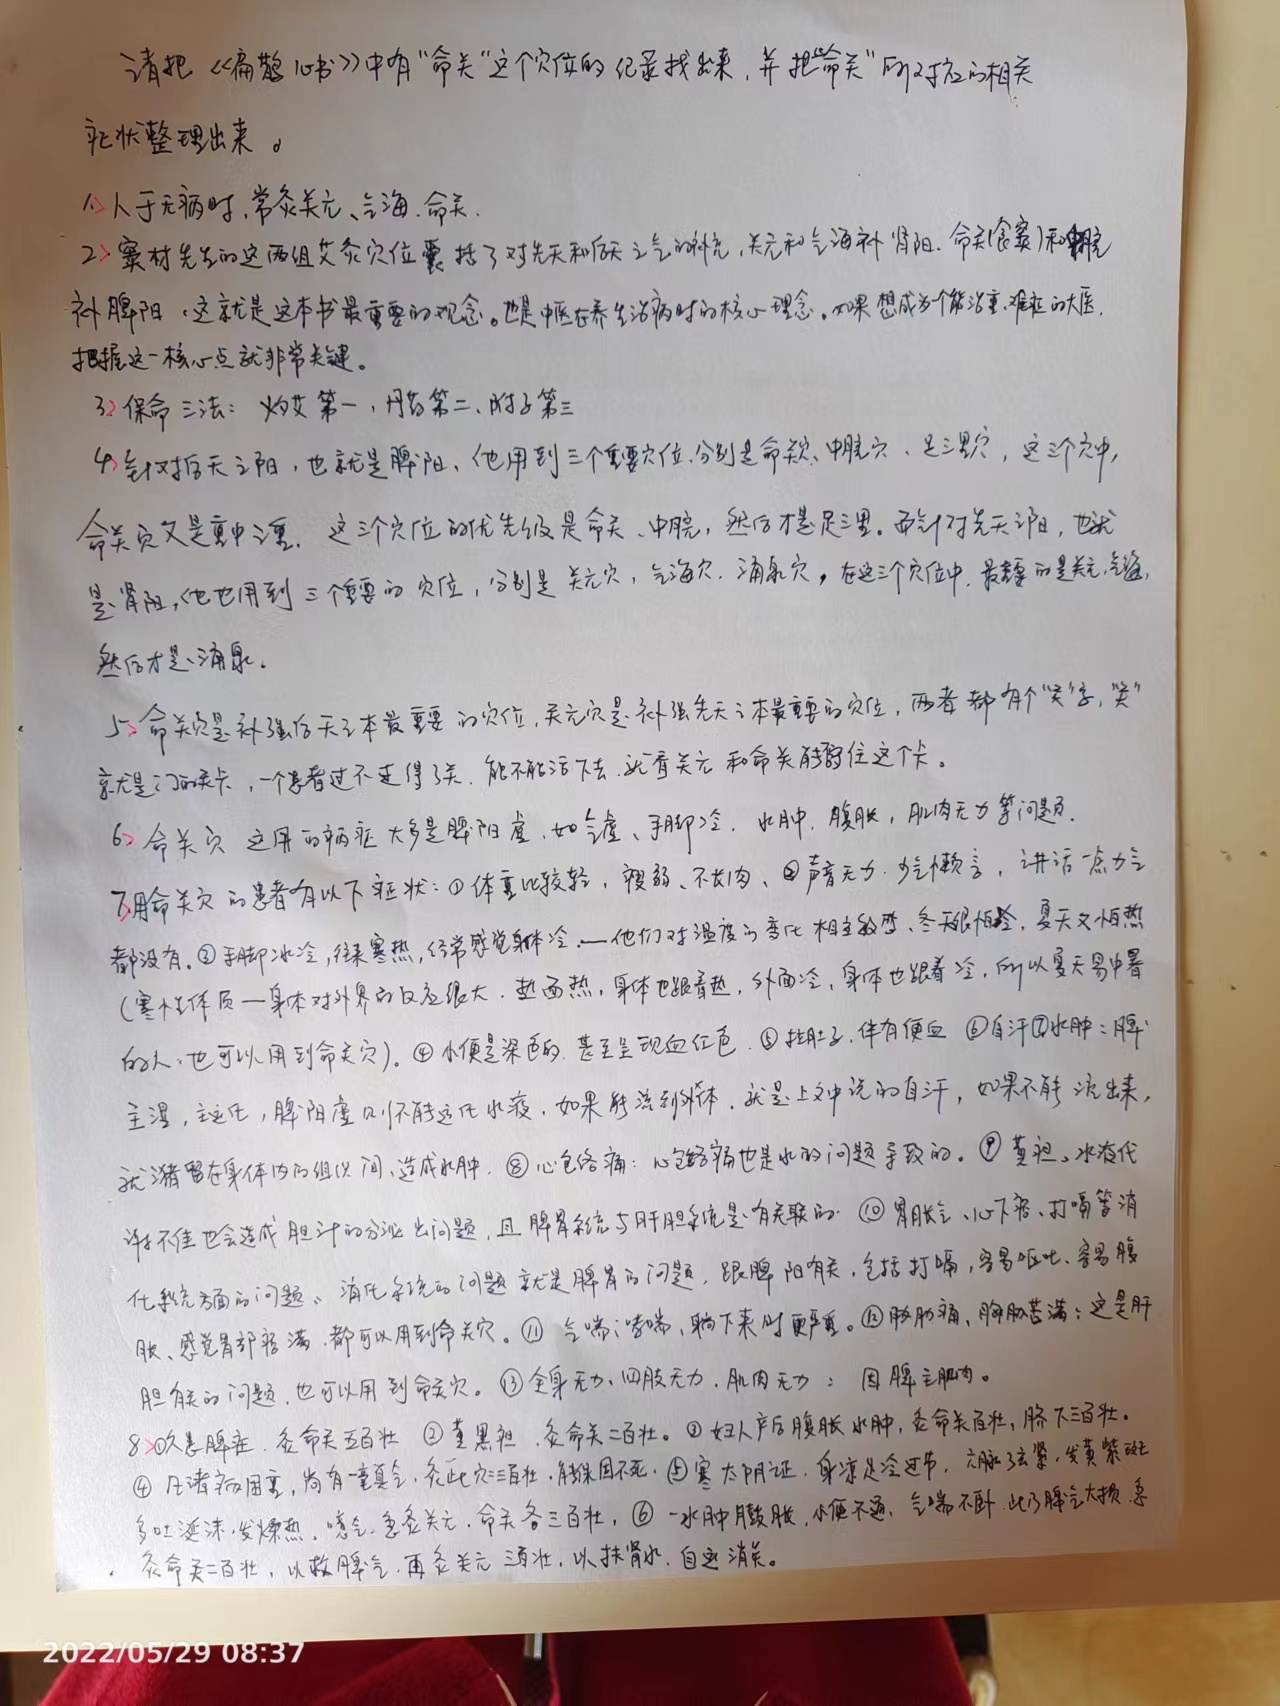 请把《扁鹊心书》中有"命关"这个穴位的纪录找出来,并把"命关"所对应的相关
症状整理出来。
1> 人于无病时,常灸关元、气海、命关.
2> 窦材先生的这两组艾灸穴位囊括了对先天和后天之气的补充,关元和气海补肾阳.命关(食窦)和中脘
补脾阳,这就是这本书最重要的观念。也是中医在养生治病时的核心理念。如果想成为个能治重、难症的大医,
把握这一核心点就非常关键。
3> 保命三法: 灼艾第一,丹药第二、附子第三
4> 针对后天之阳,也就是脾阳、他用到三个重要穴位.分别是命关、中脘穴、足三里穴,这三个穴中,
命关穴又是重中之重、这三个穴位的优先级是命关、中脘,然后才是足三里。而针对先天之阳,也就
是肾阳,他也用到三个重要的穴位,分别是关元穴,气海穴、涌泉穴,在这三个穴位中.最重要的是关元、气海,
然后才是涌泉.
5> 命关穴是补强后天之本最重要的穴位,关元穴是补强先天之本最重要的穴位,两者都有个"关"字,"关"
就是门的关卡,一个患者过不过得了关.能不能活下去.就看关元和命关能否守住这个卡。
6> 命关穴适用的病症大多是脾阳虚,如气虚、手脚冷.水肿、腹胀,肌肉无力等问题.
7>用命关穴的患者有以下症状:①体重比较轻,瘦弱、不长肉、②声音无力.少气懒言,讲话一点力气
都没有。③手脚冰冷,往来寒热,经常感觉身体冷.—他们对温度的变化相当敏感、冬天很怕冷,夏天又怕热
(寒性体质—身体对外界的反应很大.热面热,身体也跟着热,外面冷,身体也跟着冷,所以夏天易中暑
的人、也可以用到命关穴)。④小便是深色的.甚至呈现血红色.⑤拉肚子,伴有便血 ⑥自汗⑦水肿:脾
主湿,主运化,脾阳虚则不能运化水液,如果能流到外体.就是上文中说的自汗,如果不能流出来,
就潴留在身体内的组织间,造成水肿.⑧心包络痛:心包络痛也是水的问题导致的。⑨黄疸、水液代
谢不佳也会造成胆汁的分泌出问题,且脾胃系统与肝胆系统是有关联的.⑩胃胀气、心下痞、打嗝等消
化系统方面的问题、消化系统的问题就是脾胃的问题,跟脾阳有关,包括打嗝,容易呕吐、容易腹
胀、感觉胃部痞满.都可以用到命关穴。⑪气喘:哮喘、躺下来时更严重。⑫胁肋痛、胸胁苦满:这是肝
胆有关的问题,也可以用到命关穴。⑬全身无力、四肢无力,肌肉无力:因脾主肌肉。
8>①久患脾症.灸命关五百壮 ②黄黑疸,灸命关二百壮。③妇人产后腹胀水肿,灸命关百壮,脐下三百壮。
④凡诸病困重,尚有一毫真气,灸此穴二三百壮,能保固不死.⑤寒太阴证.身凉足冷过节,六脉弦紧,发黄紫斑
多吐涎沫,发燥热,噫气.急灸关元.命关各三百壮,⑥一水肿膨胀,小便不通,气喘不卧.此乃脾气大损.急
灸命关二百壮,以救脾气.再灸关元三百壮,以扶肾水.自运消矣。
2022/05/29 08:37